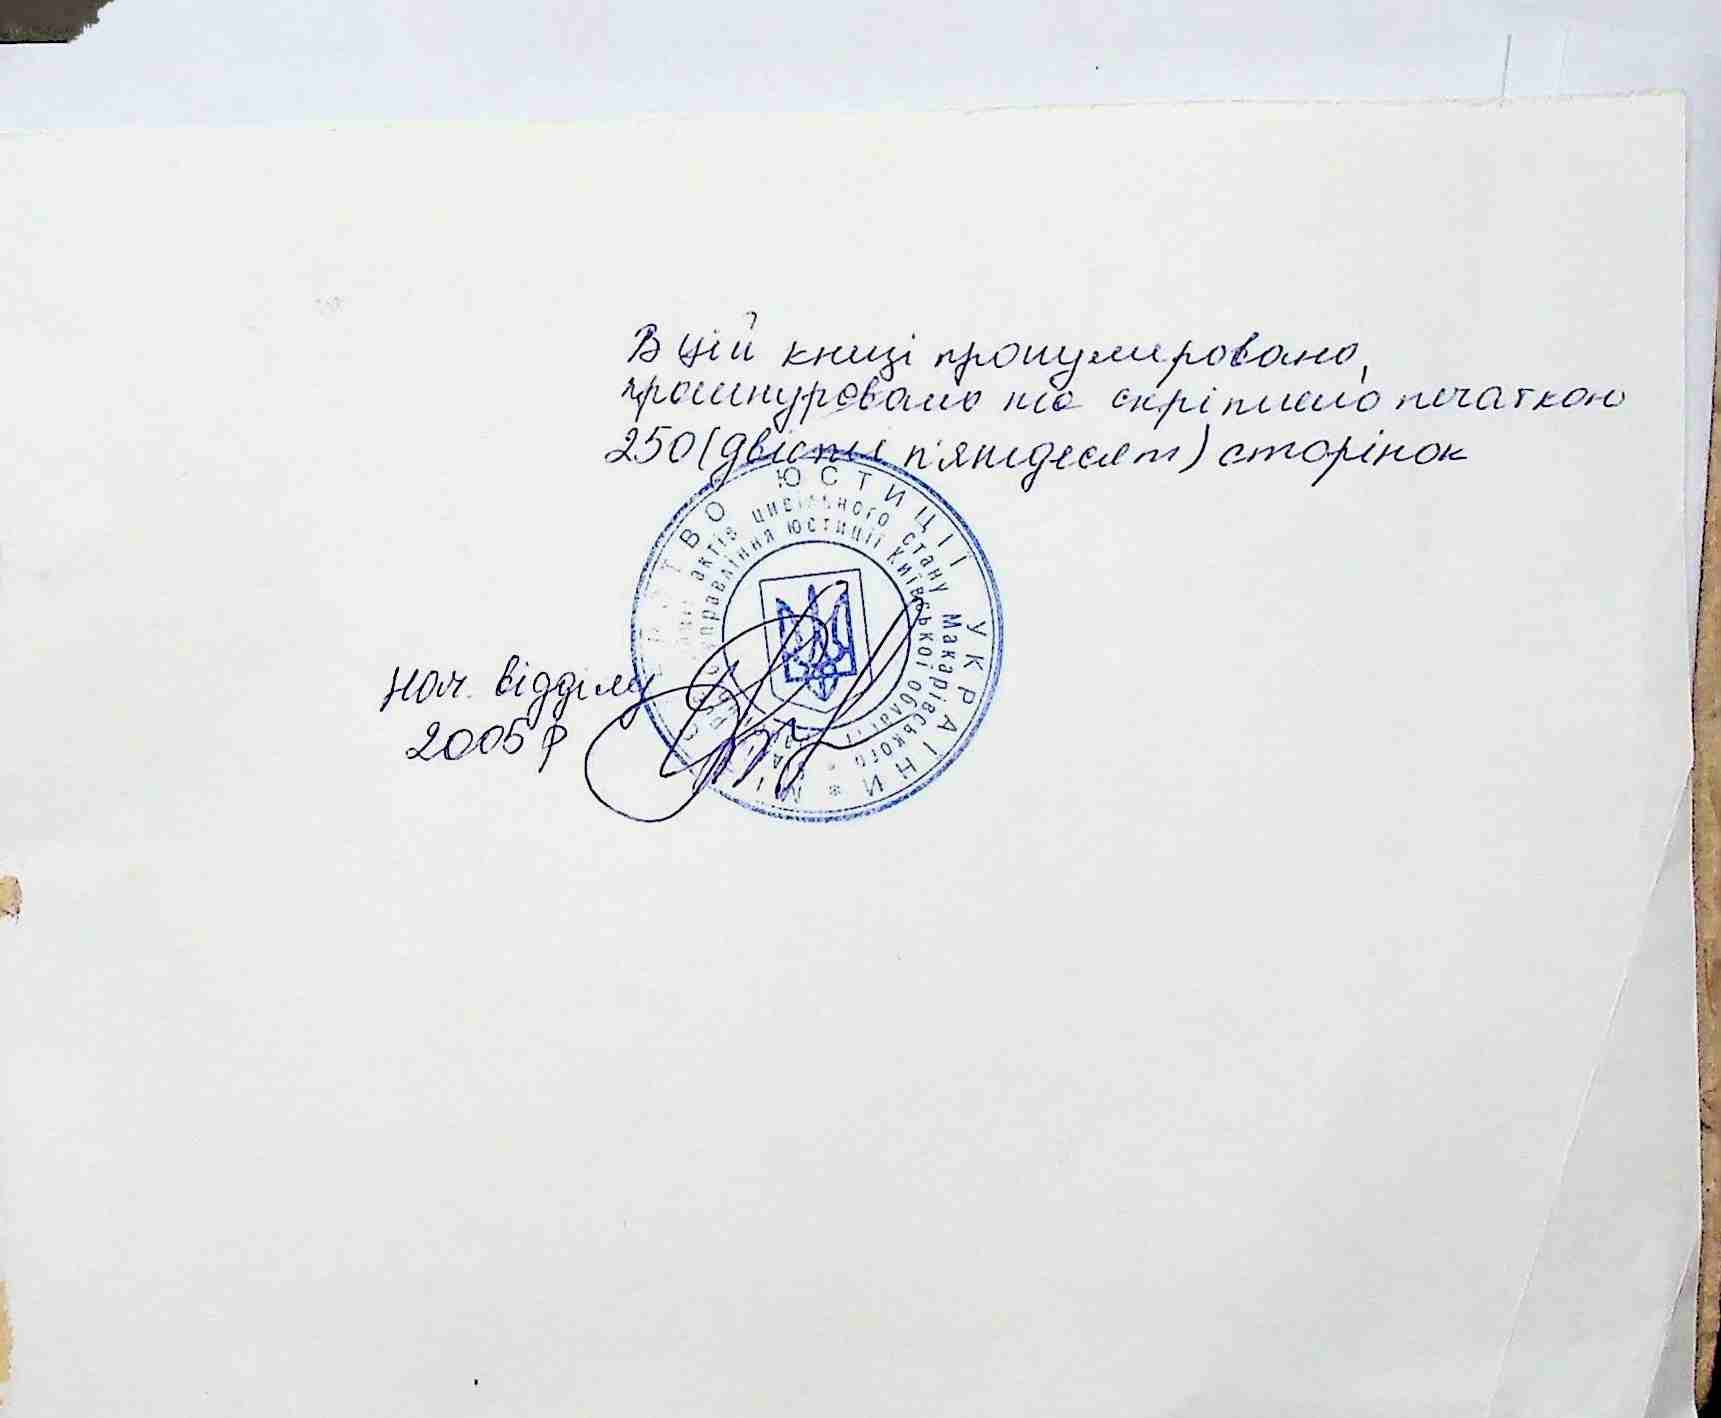 В цій книзі пронумеровано,
прошнуровано та скріплено печаткою
250 (двісти п'ятдесят) сторінок
МІНІСТЕРСТВО ЮСТИЦІЇ УКРАЇНИ *
актів цивільного стану Макарівського
управління юстиції Київської області *
Нач. відділу
2005 р